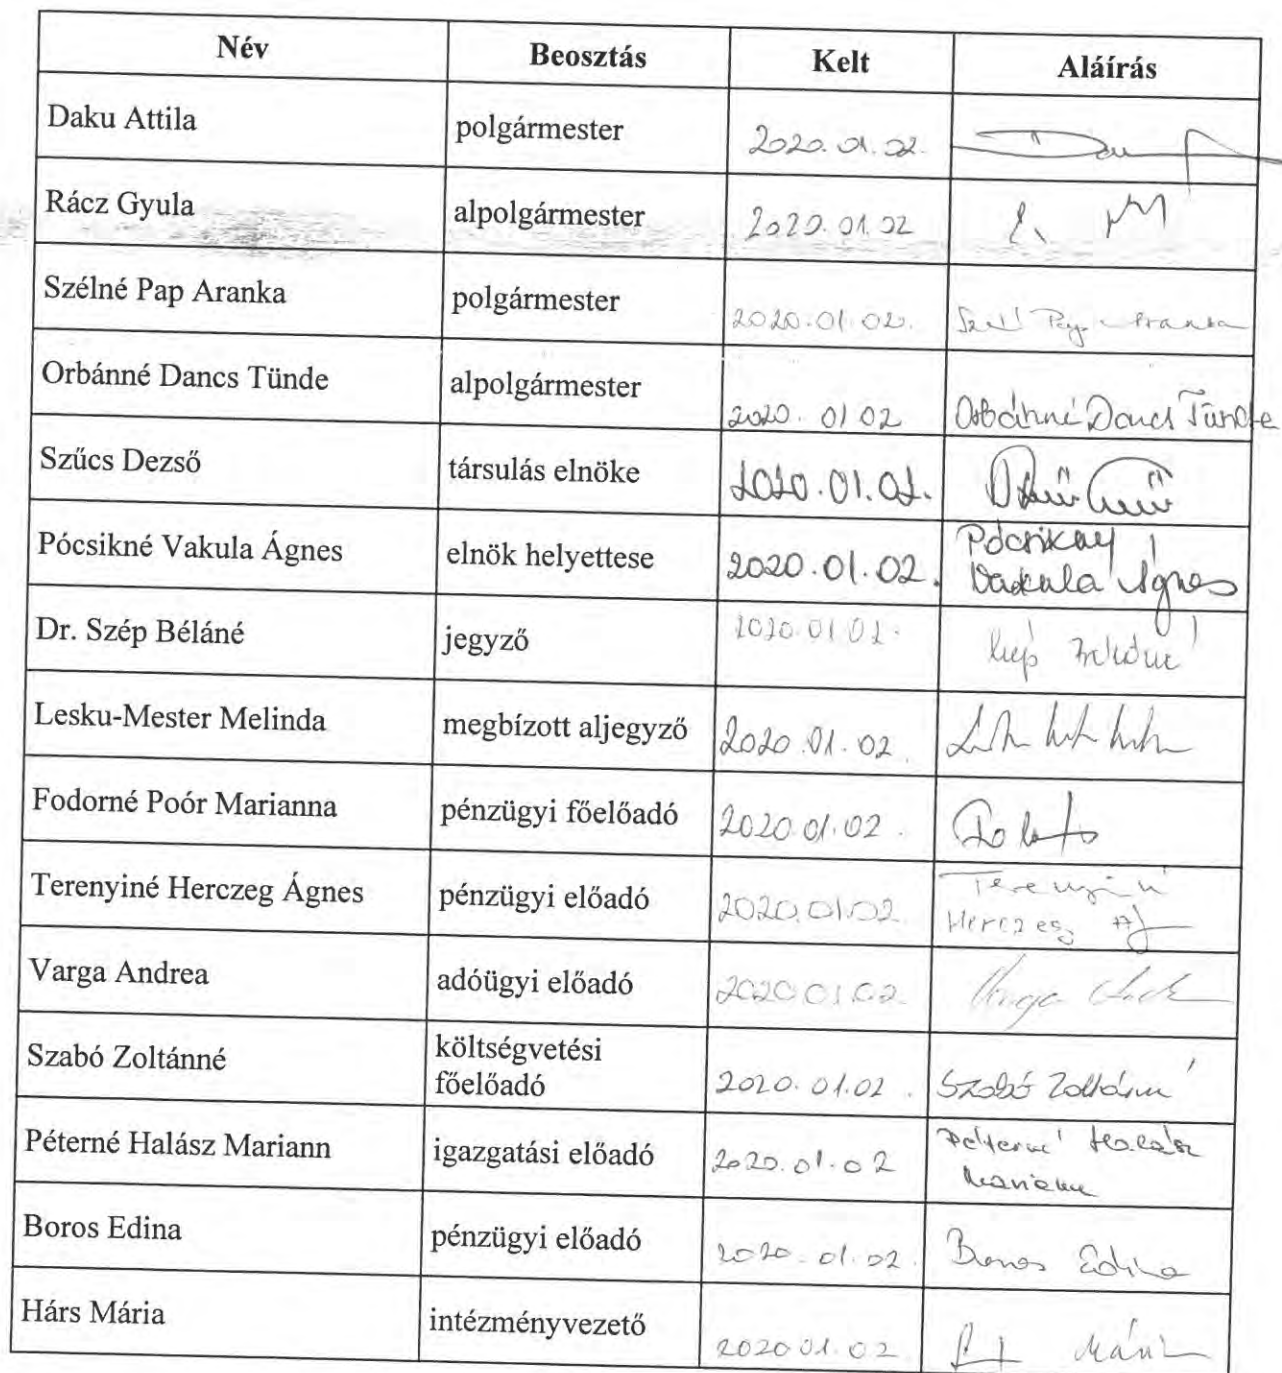 Név Beosztás Kelt Aláírás
Daku Attila polgármester 2020.01.02.
Rácz Gyula alpolgármester 2020.01.02
Szélné Pap Aranka polgármester 2020.01.02.
Orbánné Dancs Tünde alpolgármester 2020.01 02 Orbánné Dancs Tünde
Szűcs Dezső társulás elnöke 2020.01.02.
Pócsikné Vakula Ágnes elnök helyettese 2020.01.02. Pócsikné
Vakula Ágnes
Dr. Szép Béláné jegyző 2020.01.02. Szép Béláné
Lesku-Mester Melinda megbízott aljegyző 2020.01.02.
Fodorné Poór Marianna pénzügyi főelőadó 2020.01.02.
Terenyiné Herczeg Ágnes pénzügyi előadó 2020.01.02. Terenyiné
Herczeg Á
Varga Andrea adóügyi előadó 2020.01.02. Varga
Szabó Zoltánné költségvetési
főelőadó 2020.01.02. Szabó Zoltánné
Péterné Halász Mariann igazgatási előadó 2020.01.02 Péterné Halász
Mariann
Boros Edina pénzügyi előadó 2020.01.02. Boros Edina
Hárs Mária intézményvezető 2020.01.02 Mária